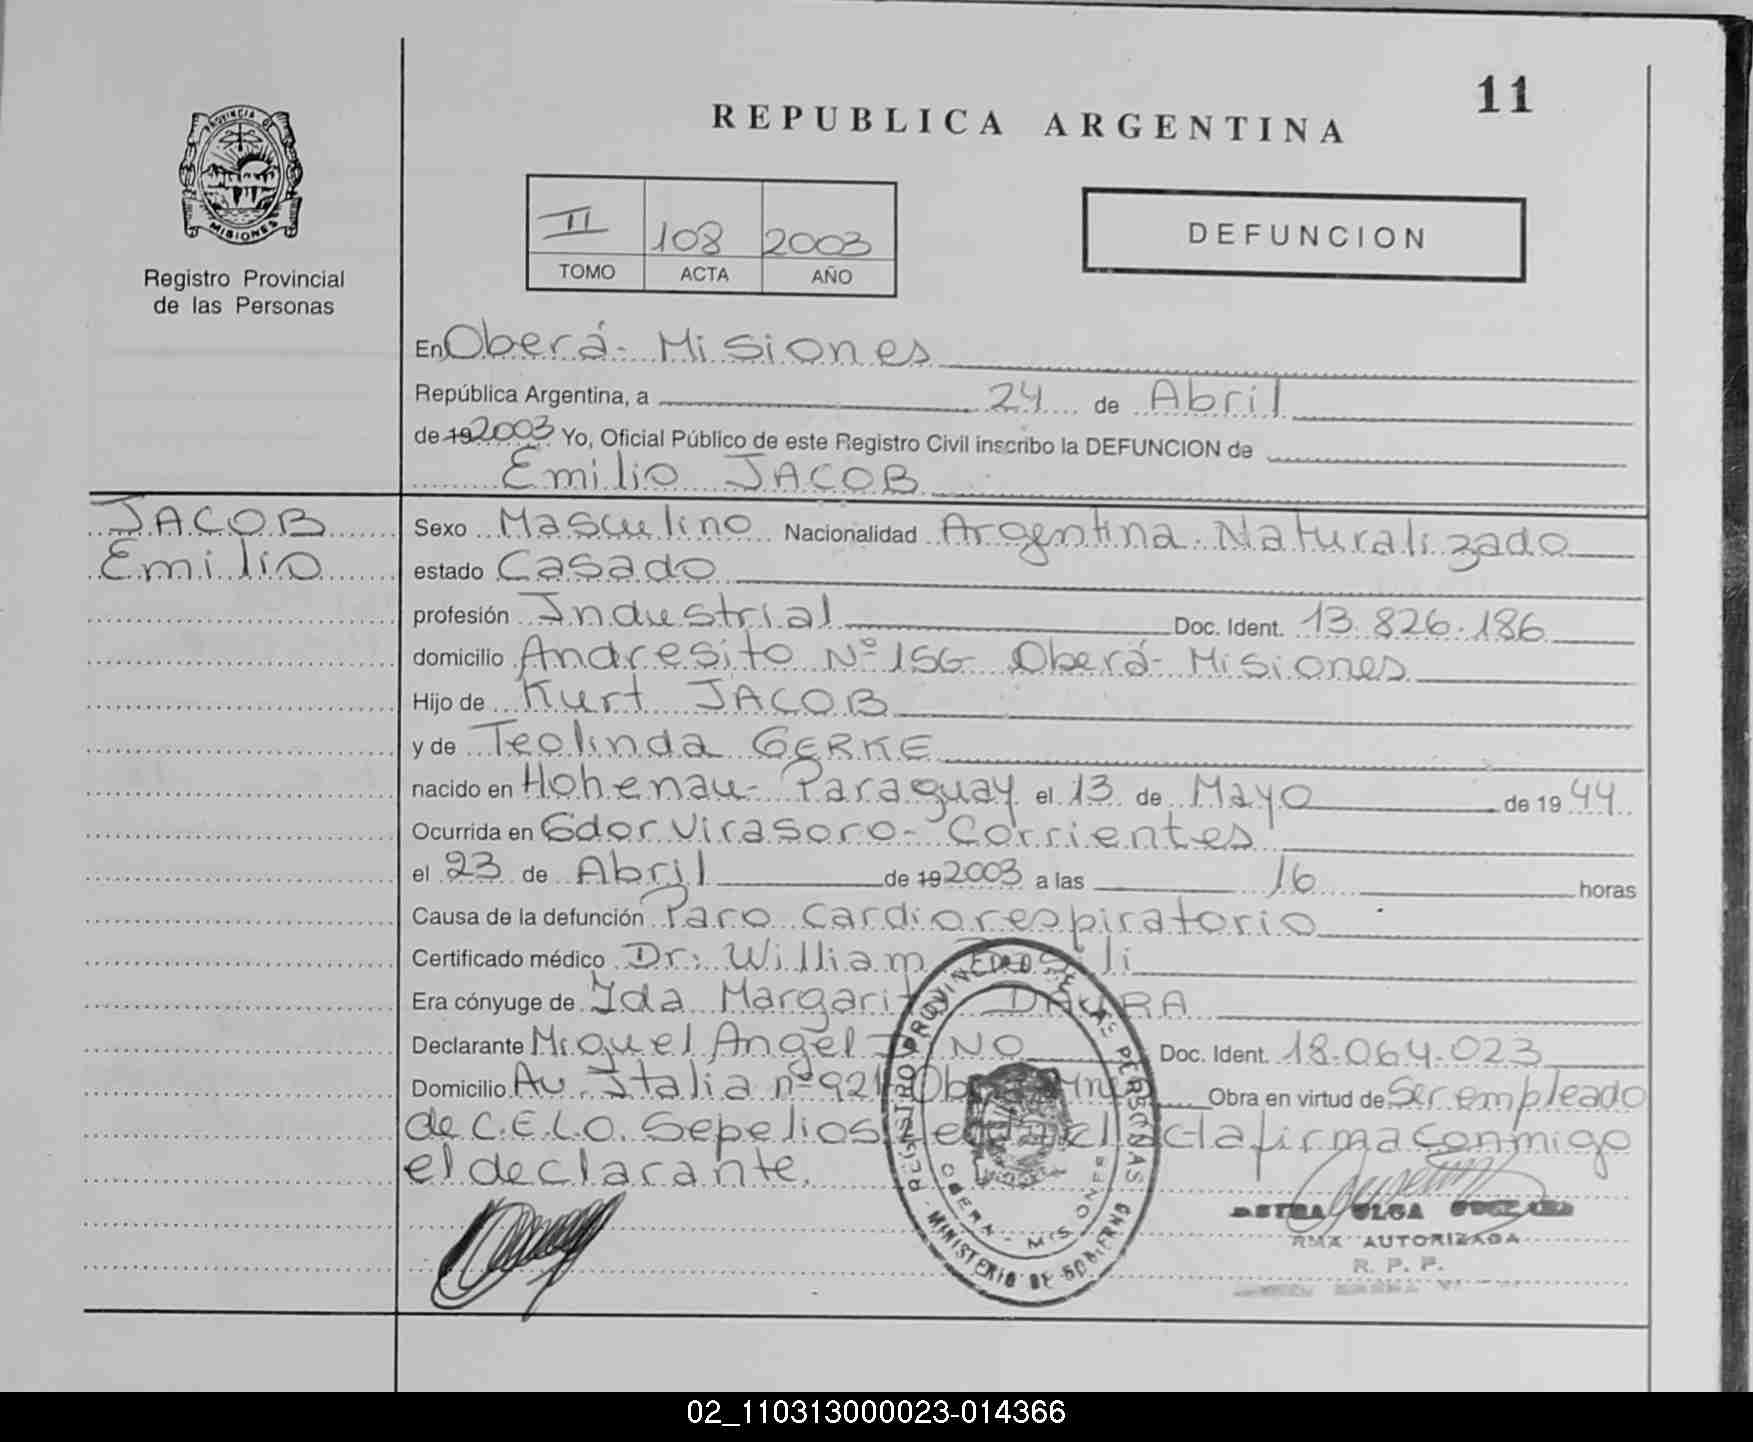 11
REPUBLICA ARGENTINA
PROVINCIA DE
MISIONES
Registro Provincial
de las Personas
II 108 2003
TOMO ACTA AÑO
DEFUNCION
En Oberá - Misiones
República Argentina, a 24 de Abril
de 19 2003 Yo, Oficial Público de este Registro Civil inscribo la DEFUNCION de
Emilio JACOB
JACOB
Emilio
Sexo Masculino Nacionalidad Argentina Naturalizado
estado Casado
profesión Industrial Doc. Ident. 13.826.186
domicilio Andresito Nº 156 Oberá - Misiones
Hijo de Kurt JACOB
y de Teolinda GERKE
nacido en Hohenau - Paraguay el 13 de Mayo de 19 44
Ocurrida en Gdor Virasoro - Corrientes
el 23 de Abril de 19 2003 a las 16 horas
Causa de la defunción Paro Cardiorespiratorio
Certificado médico Dr: William
Era cónyuge de Ida
Declarante Miguel Angel Doc. Ident. 18.064.023
Domicilio Av. Italia nº 921 Obra en virtud de Ser empleado
de C.E.L.O. Sepelios firma conmigo
el declarante.
REGISTRO PROVINCIAL DE LAS PERSONAS
OBERA - MISIONES
MINISTERIO DE GOBIERNO
OLGA
AUTORIZADA
R. P. P.
02_110313000023-014366